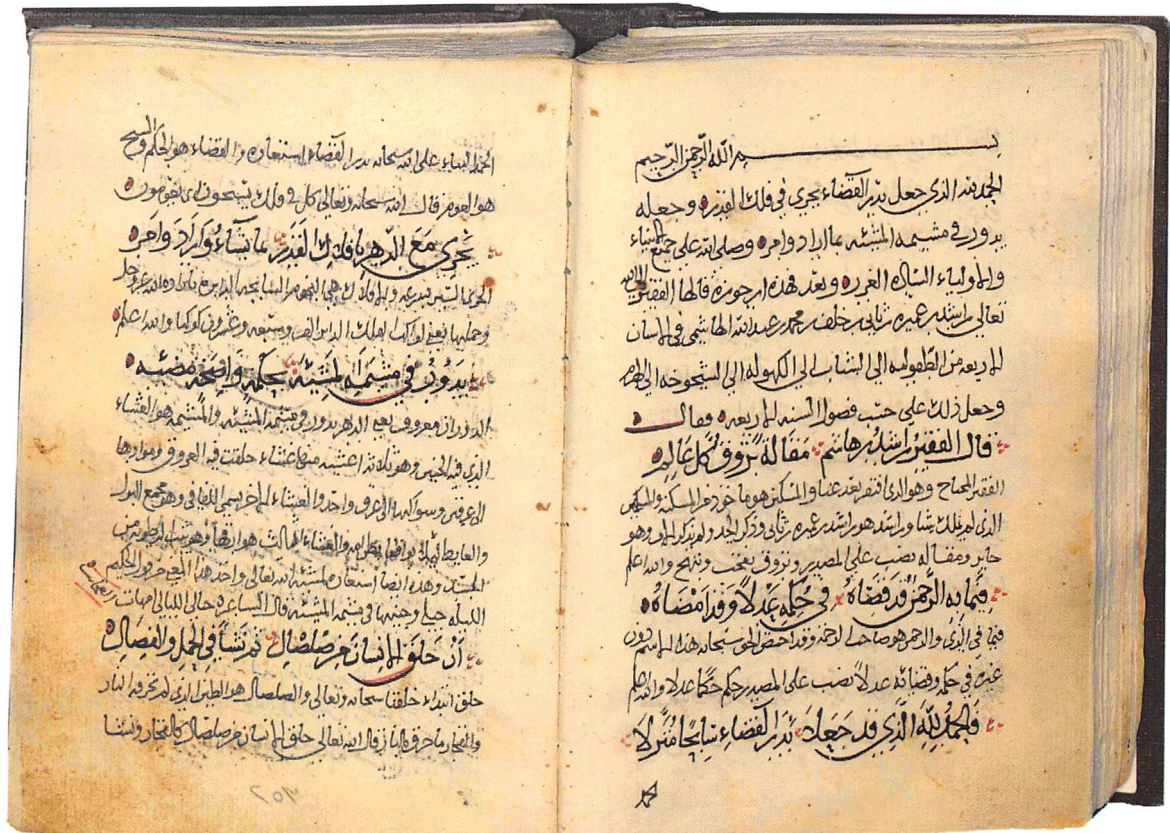 بسم الله الرحمن الرحيم
الحمد لله الذي جعل بدر القضاء يجري في فلك القدره وجعله
يدور في مشيمه المشئه بما اراد وامره وصلى الله على جميع الانبياء
والاولياء الساده الغرره وبعد فهذه ارجوزه قالها الفقير الى الله
تعالى راشد بن عميره بن ثاني بن خلف بن محمد بن عبد الله الهاشمي في الاسنان
الاربعه من الطفوليه الى الشباب الى الكهوله الى الشيخوخه الى الهرم
وجعل ذلك على حسب فصول السنه الاربعه فقال
قال الفقير راشد بن هاشم مقالة تروق كل عالم
الفقير المحتاج وهو الذي افتقر بعد غنا والمسكين هو ماخوذ من المسكنه والمسكين
الذي لم يملك شيا وراشد هو راشد بن عميره بن ثاني وذكر الجد ولم يذكر الاب وهو
جايز ومقاله نصب على المصدر وتروق تعجب وتبهج والله اعلم
فيما به الرحمن قد قضاه في حكمه عدلا وقد امضاه
فيما في الذي والرحمن هو صاحب الرحمه وقد اختص الحق سبحانه هذا الاسم دون
غيره في حكمه وقضائه عدلا نصب على المصدر حكم حكما عدلا والله اعلم
فالحمد لله الذي قد جعلا بدر القضاء سابحا منزلا
الحمد الثناء على الله سبحانه بدر القضاء استعاره والقضاء هو الحكم والسبح
هو العوم قال الله سبحانه وتعالى كل في فلك يسبحون اي يعومون
يجري مع الدهر بافلاك القدر بما يشاء واراد وامر
الجري السير والافلاك هي النجوم السابحه الدايره
وجملها يعني الكواكب الف وسبعه وعشرون كوكبا والله اعلم
يدور في مشيمة المشئة بحكمة واضحة مضئه
الدوران معروف يعني الدهر يدور في مشيمة المشئه والمشيمه هو الغشاء
الذي فيه الجنين وهو ثلاثه اغشيه منها غشاء خلقت فيه العروق ومواردها
الى عرقين وسواكنها الى عرق واحد والغشاء الاخر يسمى اللفافي وهو مجمع البول
والغشاء الثالث هو ارقها وهو
الجنين وهذه ايضا استعاره لمشئة الله تعالى واخذ هذا المعنى من قول الحكيم
الليله حبلى وجنينها في مشيمة المشئه قال الشاعر حالى الليالي امهات
أن خلق الانسان من صلصال ثم نشا في الحمل والفصال
خلق ابتداء خلقنا سبحانه وتعالى والصلصال هو الطين الذي لم تحرقه النار
والفخار ما حرق بالنار قال الله تعالى خلق الانسان من صلصال كالفخار